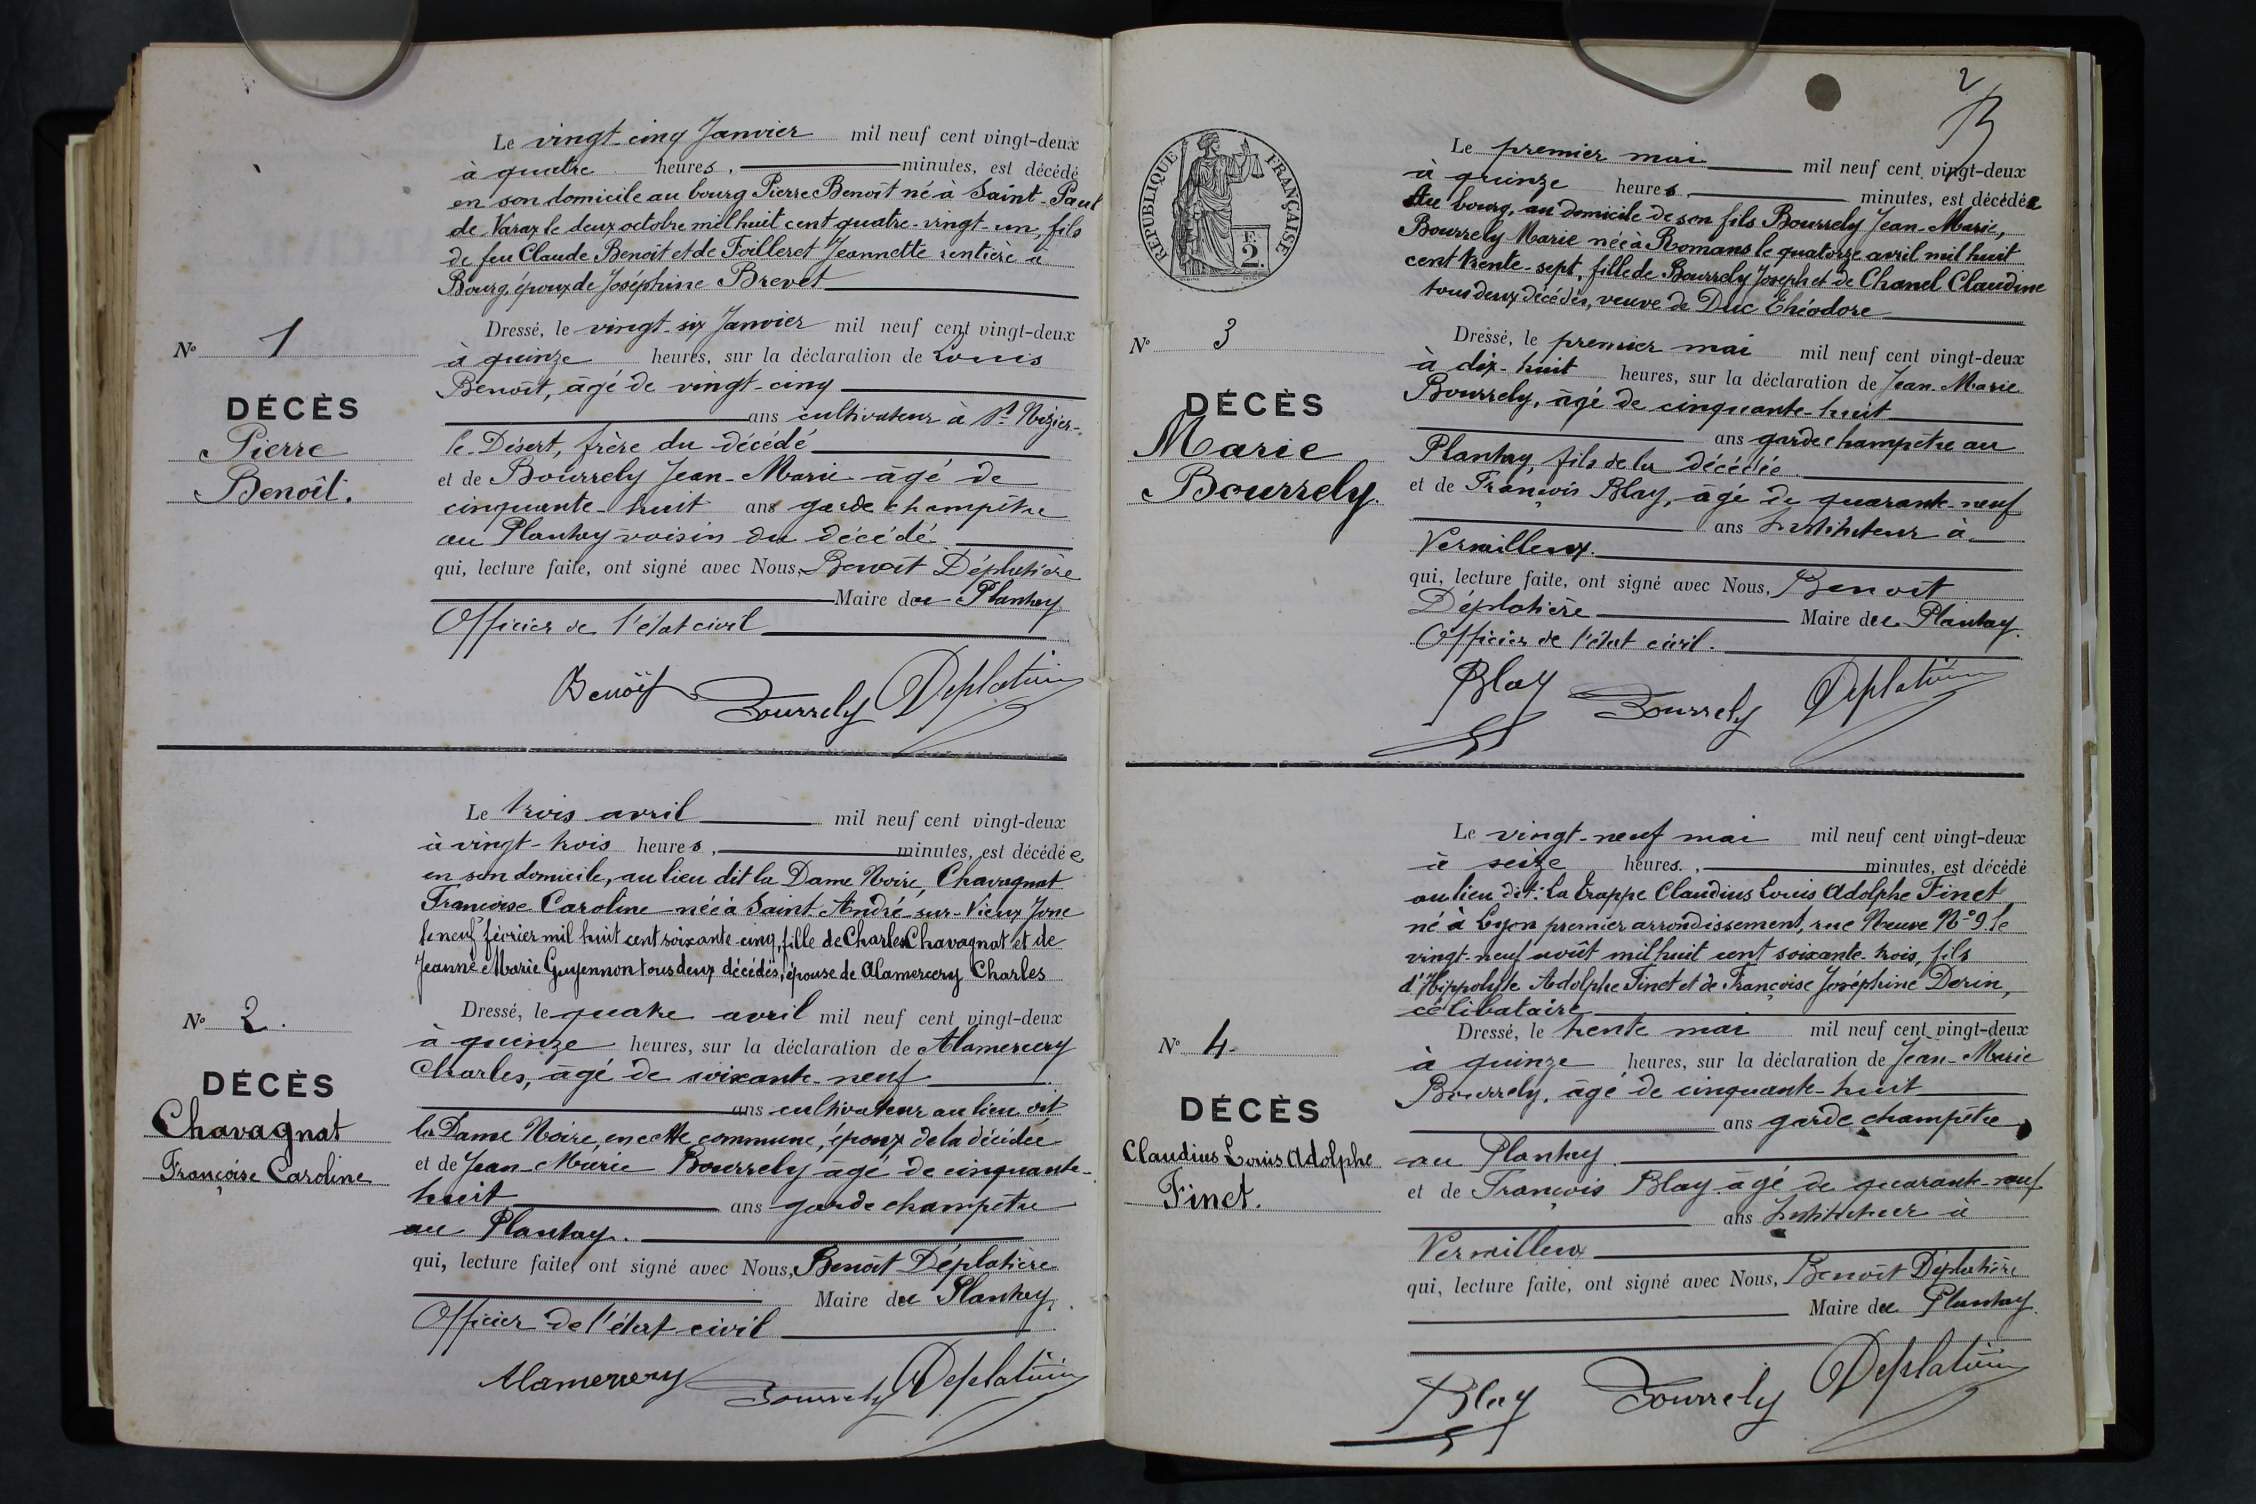 Le vingt-cinq Janvier mil neuf cent vingt-deux
à quatre heures, minutes, est décédé
en son domicile au bourg Pierre Benoît né à Saint-Paul
de Varax le deux octobre mil huit cent quatre-vingt-un, fils
de feu Claude Benoît et de Foilleret Jeannette rentière à
Bourg, époux de Joséphine Brevet
Nº 1
DÉCÈS
Pierre
Benoît.
Dressé, le vingt-six Janvier mil neuf cent vingt-deux
à quinze heures, sur la déclaration de Louis
Benoît, âgé de vingt-cinq
ans cultivateur à St Nizier-
le-Désert, frère du décédé
et de Bourrely Jean-Marie âgé de
cinquante-huit ans garde champêtre
au Plantay voisin du décédé
qui, lecture faite, ont signé avec Nous, Benoît Déplatière
Maire du Plantay
Officier de l'état civil
Benoît Bourrely Deplatière
Le trois avril mil neuf cent vingt-deux
à vingt-trois heures, minutes, est décédée
en son domicile, au lieu dit la Dame Noire, Chavagnat
Françoise Caroline née à Saint André-sur-Vieux Jonc
le neuf février mil huit cent soixante-cinq, fille de Charles Chavagnat et de
Jeanne Marie Guyennon tous deux décédés, épouse de Alamercery Charles
Nº 2.
DÉCÈS
Chavagnat
Françoise Caroline
Dressé, le quatre avril mil neuf cent vingt-deux
à quinze heures, sur la déclaration de Alamercery
Charles, âgé de soixante-neuf
ans cultivateur au lieu dit
la Dame Noire, en cette commune, époux de la décédée
et de Jean-Marie Bourrely âgé de cinquante-
huit ans garde champêtre
au Plantay.
qui, lecture faite, ont signé avec Nous, Benoît Déplatière
Maire du Plantay.
Officier de l'état civil
Alamercery Bourrely Deplatière
2
RÉPUBLIQUE FRANÇAISE
F.
2.
Le premier mai mil neuf cent vingt-deux
à quinze heures minutes, est décédée
Au bourg, au domicile de son fils Bourrely Jean-Marie,
Bourrely Marie née à Romans le quatorze avril mil huit
cent trente-sept, fille de Bourrely Joseph et de Chanel Claudine
tous deux décédés, veuve de Duc Théodore
Nº 3
DÉCÈS
Marie
Bourrely.
Dressé, le premier mai mil neuf cent vingt-deux
à dix-huit heures, sur la déclaration de Jean-Marie
Bourrely, âgé de cinquante-huit
ans garde champêtre au
Plantay, fils de la décédée
et de François Blay, âgé de quarante-neuf
ans Instituteur à
Versailleux.
qui, lecture faite, ont signé avec Nous, Benoît
Déplatière Maire du Plantay.
Officier de l'état civil.
Blay Bourrely Deplatière
Le vingt-neuf mai mil neuf cent vingt-deux
à seize heures, minutes, est décédé
au lieu dit: la Trappe Claudius Louis Adolphe Finet
né à Lyon premier arrondissement, rue Neuve Nº 9 le
vingt-neuf août mil huit cent soixante-trois, fils
d'Hippolyte Adolphe Finet et de Françoise Joséphine Derin,
célibataire
Nº 4.
DÉCÈS
Claudius Louis Adolphe
Finet.
Dressé, le trente mai mil neuf cent vingt-deux
à quinze heures, sur la déclaration de Jean-Marie
Bourrely, âgé de cinquante-huit
ans garde champêtre
au Plantay.
et de François Blay âgé de quarante-neuf
ans Instituteur à
Versailleux
qui, lecture faite, ont signé avec Nous, Benoît Déplatière
Maire du Plantay.
Blay Bourrely Deplatière